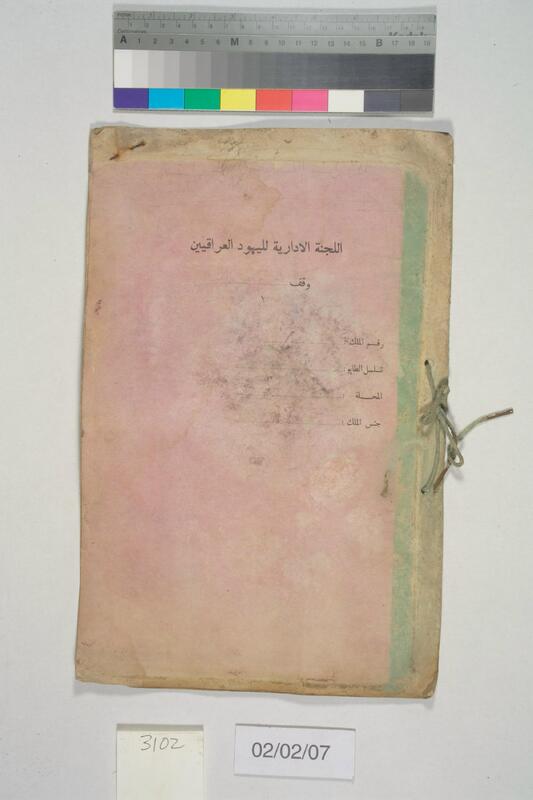 A 1 2 3 4 5 6 M 8 9 10 11 12 13 14 15 B 17 18 19
اللجنة الادارية لليهود العراقيين
وقف
رقم الملك :
تسلسل الطابو :
المحلة :
جنس الملك :
3102
02/02/07